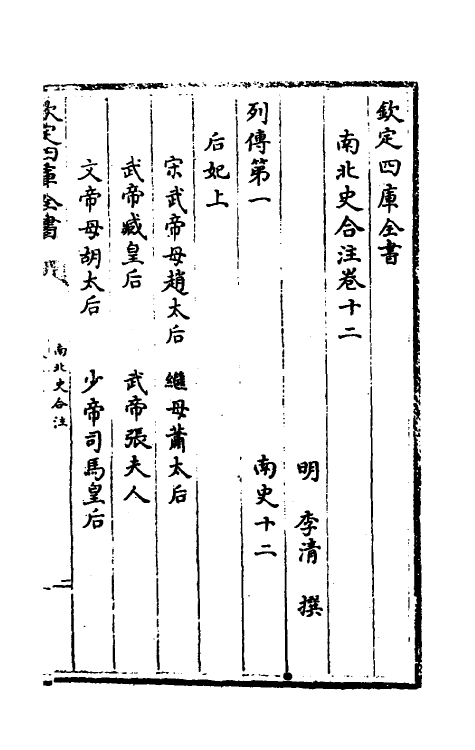 欽定四庫全書
南北史合注卷十二
明 李清 撰
列傳第一 南史十二
后妃上
宋武帝母趙太后 繼母蕭太后
武帝臧皇后 武帝張夫人
文帝母胡太后 少帝司馬皇后
欽定四庫全書
南北史合注